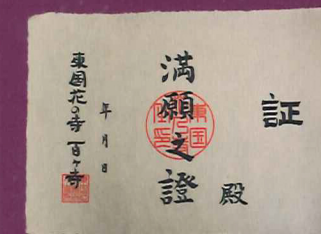 証
殿
満願之證
年月日
東国花の寺百ヶ寺